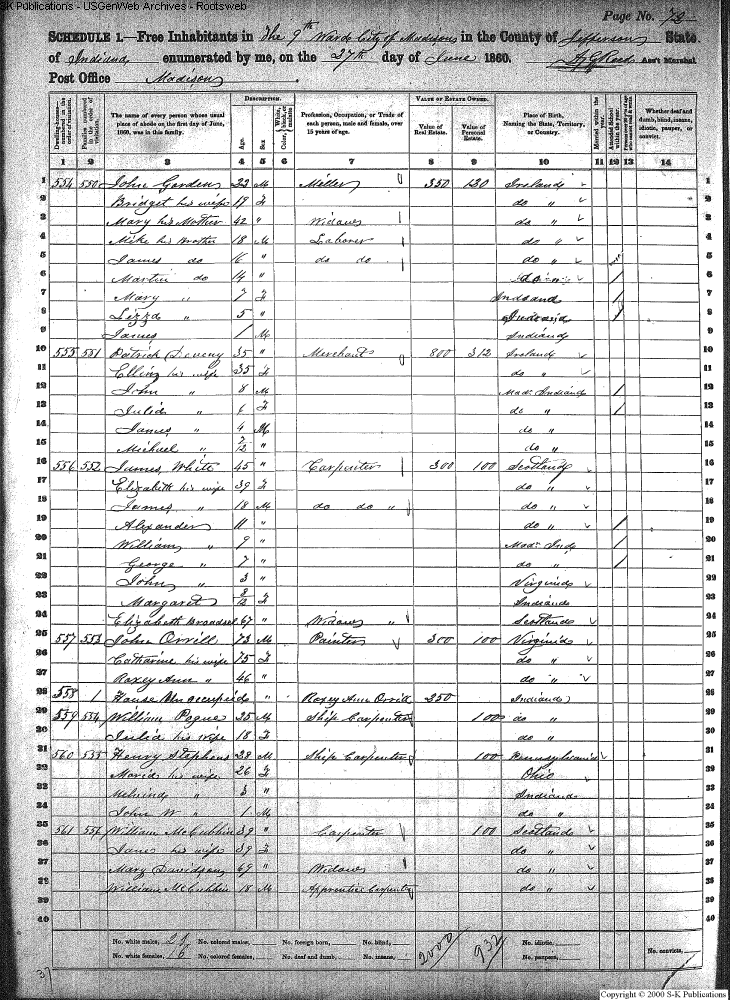 S-K Publications - USGenWeb Archives - Rootsweb
Page No. 73
SCHEDULE 1.—Free Inhabitants in The 9th Ward City of Madison in the County of Jefferson State
of Indiana enumerated by me, on the 27th day of June 1860. Ass't Marshal
Post Office Madison.
DESCRIPTION. VALUE OF ESTATE OWNED.
Dwelling-houses numbered in the order of visitation. Families numbered in the order of visitation. The name of every person whose usual place of abode on the first day of June, 1860, was in this family. Age. Sex. Color, White, black, or mulatto. Profession, Occupation, or Trade of each person, male and female, over 15 years of age. Value of Real Estate. Value of Personal Estate. Place of Birth, Naming the State, Territory, or Country. Married within the year. Attended School within the year. Whether deaf and dumb, blind, insane, idiotic, pauper, or convict.
1 2 3 4 5 6 7 8 9 10 11 12 13 14
1 554 550 John Gorden 22 M Ireland 1
2 Bridget his wife 19 F do " 2
3 Mary his Mother 42 " Widow do " 3
4 Mike his Brother 18 M Laborer do " 4
5 James do 16 " do do do " 5
6 Martin do 14 " do " / 6
7 Mary " 7 F Indiana / 7
8 Lizza " 5 " Indiana / 8
9 James 1 M Indiana 9
10 555 551 Patrick Deveny 35 " Merchant 800 312 Ireland 10
11 his wife 35 F do " 11
12 John " 8 M Mad: Indiana / 12
13 Julia " 6 F do " / 13
14 James " 4 M do " 14
15 Michael " 7/12 " do " 15
16 556 552 James White 45 " Carpenter 300 100 Scotland 16
17 Elizabeth his wife 39 F do " 17
18 James " 18 M do do " do " 18
19 Alexander 11 " do " / 19
20 William " 9 " Mad: Ind / 20
21 George " 7 " do " / 21
22 John " 3 " Virginia
Margaret F Indiana
24 Elizabeth 67 " Widow " Scotland
25 557 553 John Orrill 73 M Painter 300 100 Virginia
Catharine his wife 75 F do "
27 Roxey Ann " 46 " do "
28 558 1 House Unoccupied " Roxey Ann Orrill 250 Indiana
559 554 William Pogue 25 M Ship Carpenter 100 do "
Julia his wife 18 F do "
31 560 555 Henry Stephens 28 M Ship Carpenter 100 Pennsylvania
Maria his wife 26 F Ohio
3 " Indiana
34 John W " 1 M do "
35 561 556 William McCubbin 39 " Carpenter 100 Scotland
Jane his wife 39 F do "
37 Mary Davidson 69 " Widow do "
William McCubbin 18 M Apprentice Carpenter do "
40 40
No. white males, No. colored males, No. foreign born, No. blind, 2000 932 No. idiotic,
No. white females, 16 No. colored females, No. deaf and dumb, No. insane, No. paupers, No. convicts,
37
Copyright © 2000 S-K Publications